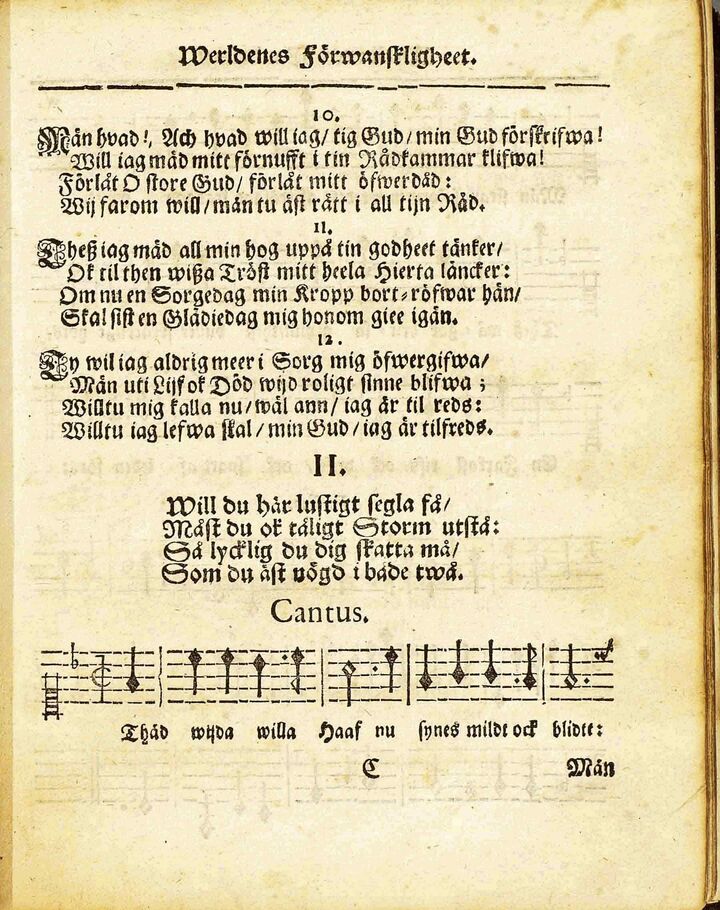 Werldenes Förwanskligheet.
10.
Män hvad!, Ach hvad will iag/ tig Gud/ min Gud förskrifwa!
Will iag mäd mitt förnufft i tin Rådkammar klifwa!
Förlåt O store Gud/ förlåt mitt öfwerdåd:
Wij farom will/ män tu äst rätt i all tijn Råd.
11.
Theß iag mäd all min hog uppå tin godheet tänker/
Ok til then wißa Tröst mitt heela Hierta läncker:
Om nu en Sorgedag min Kropp bort-röfwar hän/
Skal sist en Glädiedag mig honom giee igän.
12.
Ty wil iag aldrig meer i Sorg mig öfwergifwa/
Män uti Lijf ok Död wijd roligt sinne blifwa;
Willtu mig kalla nu/ wäl ann/ iag är til reds:
Willtu iag lefwa skal/ min Gud/ iag är tilfreds.
II.
Will du här lustigt segla få/
Måst du ok tåligt Storm utstå:
Så lycklig du dig skatta må/
Som du äst nögd i både twå.
Cantus.
Thäd wijda willa Haaf nu synes mildt ock blidtt:
C Män